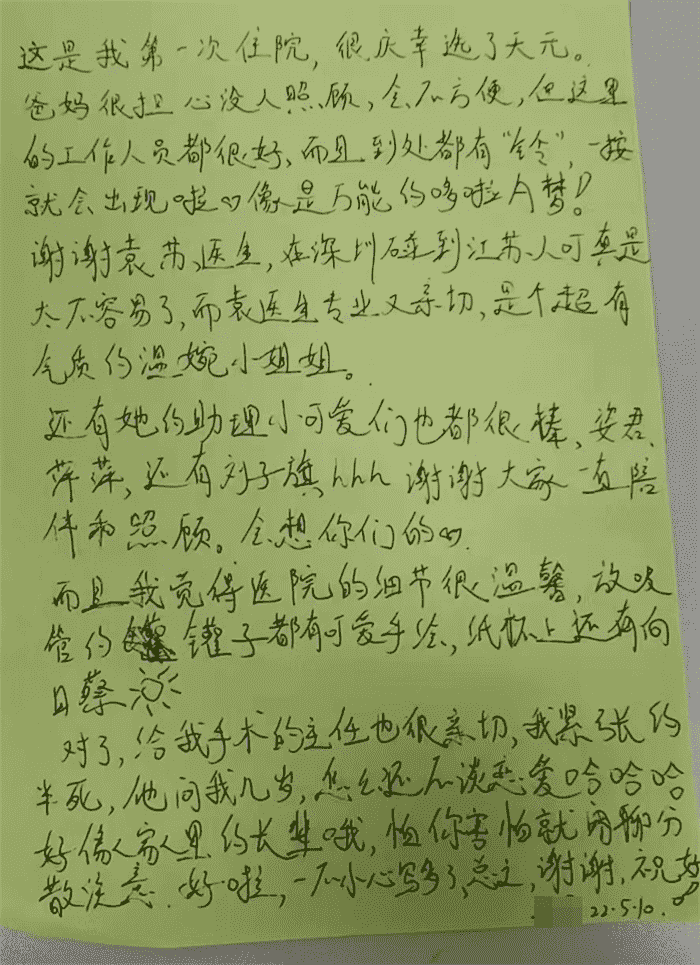 这是我第一次住院，很庆幸选了天元。
爸妈很担心没人照顾，会不方便，但这里
的工作人员都很好、而且到处都有“铃”，一按
就会出现啦♡像是万能的哆啦A梦！
谢谢袁芳医生，在深圳碰到江苏人可真是
太不容易了，而袁医生专业又亲切，是个超有
气质的温婉小姐姐。
还有她的助理小可爱们也都很棒，姿君、
萍萍，还有刘子旗hhh 谢谢大家一直陪
伴和照顾。会想你们的♡.
而且我觉得医院的细节很温馨，放吸
管的罐子都有可爱手绘，纸杯上还有向
日葵
对了，给我手术的主任也很亲切，我紧张的
半死，他问我几岁，怎么还不谈恋爱哈哈哈
好像家里的长辈哦，怕你害怕就闲聊分
散注意. 好啦，一不小心写多了，总之，谢谢，祝好
22.5.10.